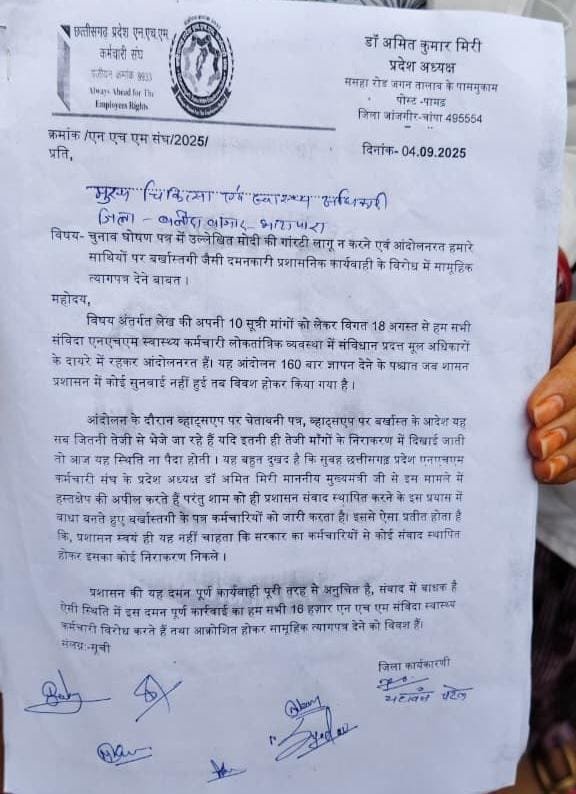 छत्तीसगढ़ प्रदेश एन.एच.एम.
कर्मचारी संघ
पंजीयन क्रमांक 9933
Always Ahead for The
Employees Rights
डॉ अमित कुमार मिरी
प्रदेश अध्यक्ष
ससहा रोड जगन तालाब के पासमुकाम
पोस्ट -पामगढ़
जिला जांजगीर-चांपा 495554
क्रमांक /एन एच एम संघ/2025/
दिनांक- 04.09.2025
प्रति,
मुख्य चिकित्सा एवं स्वास्थ्य अधिकारी
जिला - बलौदा बाजार - भाटापारा
विषय- चुनाव घोषण पत्र में उल्लेखित मोदी की गांरटी लागू न करने एवं आंदोलनरत हमारे
साथियों पर बर्खास्तगी जैसी दमनकारी प्रशासनिक कार्यवाही के विरोध में सामूहिक
त्यागपत्र देने बाबत ।
महोदय,
विषय अंतर्गत लेख की अपनी 10 सूत्री मांगों को लेकर विगत 18 अगस्त से हम सभी
संविदा एनएचएम स्वास्थ्य कर्मचारी लोकतांत्रिक व्यवस्था में संविधान प्रदत्त मूल अधिकारों
के दायरे में रहकर आंदोलनरत हैं। यह आंदोलन 160 बार ज्ञापन देने के पश्चात जब शासन
प्रशासन में कोई सुनवाई नहीं हुई तब विवश होकर किया गया है ।
आंदोलन के दौरान व्हाट्सएप पर चेतावनी पत्र, व्हाट्सएप पर बर्खास्त के आदेश यह
सब जितनी तेजी से भेजे जा रहे हैं यदि इतनी ही तेजी माँगों के निराकरण में दिखाई जाती
तो आज यह स्थिति ना पैदा होती । यह बहुत दुखद है कि सुबह छत्तीसगढ़ प्रदेश एनएचएम
कर्मचारी संघ के प्रदेश अध्यक्ष डॉ अमित मिरी माननीय मुख्यमंत्री जी से इस मामले में
हस्तक्षेप की अपील करते हैं परंतु शाम को ही प्रशासन संवाद स्थापित करने के इस प्रयास में
बाधा बनते हुए बर्खास्तगी के पत्र कर्मचारियों को जारी करता है। इससे ऐसा प्रतीत होता है
कि, प्रशासन स्वयं ही यह नहीं चाहता कि सरकार का कर्मचारियों से कोई संवाद स्थापित
होकर इसका कोई निराकरण निकले ।
प्रशासन की यह दमन पूर्ण कार्यवाही पूरी तरह से अनुचित है, संवाद में बाधक है
ऐसी स्थिति में इस दमन पूर्ण कार्रवाई का हम सभी 16 हज़ार एन एच एम संविदा स्वास्थ्य
कर्मचारी विरोध करते हैं तथा आक्रोशित होकर सामूहिक त्यागपत्र देने को विवश हैं।
संलग्न:-सूची
जिला कार्यकारणी
पटेल